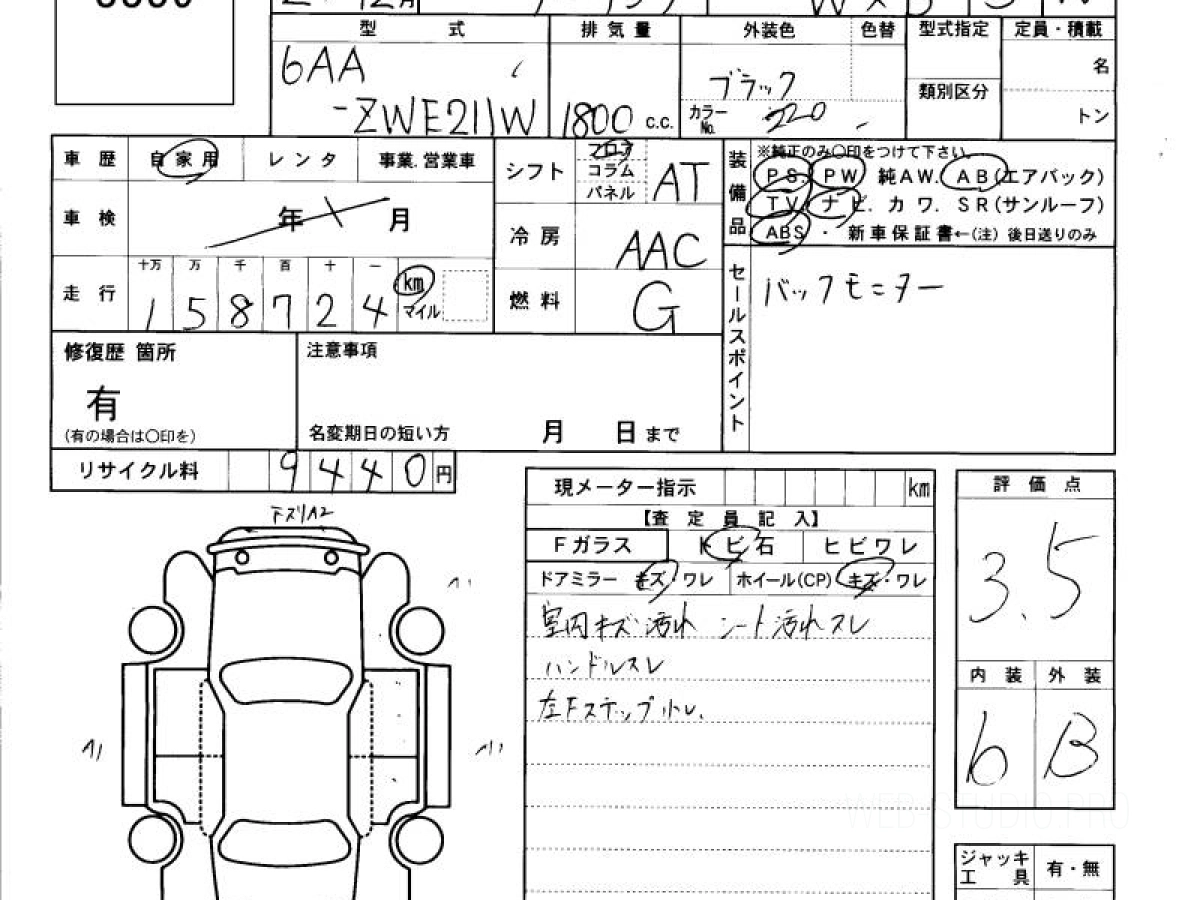 型 式
排 気 量
外装色
色替
型式指定
定員・積載
6AA
-ZWE211W
1800 c.c.
ブラック
カラーNo. 220
類別区分
名
トン
車 歴
自家用
レ ン タ
事業.営業車
車 検
年 月
走 行
十万 万 千 百 十 一
1 5 8 7 2 4
km
マイル
シフト
フロア
コラム
パネル
AT
冷 房
AAC
燃 料
G
装備品
※純正のみ○印をつけて下さい。
PS. PW 純AW. AB(エアバック)
TV. ナビ. カワ. SR(サンルーフ)
ABS ・ 新車保証書←(注) 後日送りのみ
セールスポイント
バックモニター
修復歴 箇所
有
(有の場合は○印を)
注意事項
名変期日の短い方 月 日 まで
リサイクル料 9 4 4 0 円
現メーター指示 km
【査 定 員 記 入】
Fガラス
トビ石
ヒビワレ
ドアミラー キズ・ワレ
ホイール(CP) キズ・ワレ
室内キズ汚れ シート汚れスレ
ハンドルスレ
左Fステップ
評 価 点
3.5
内 装
外 装
b
B
ジャッキ
工 具
有・無
FスリA2
A1
A1
A1
WEB-STUDIO.PRO